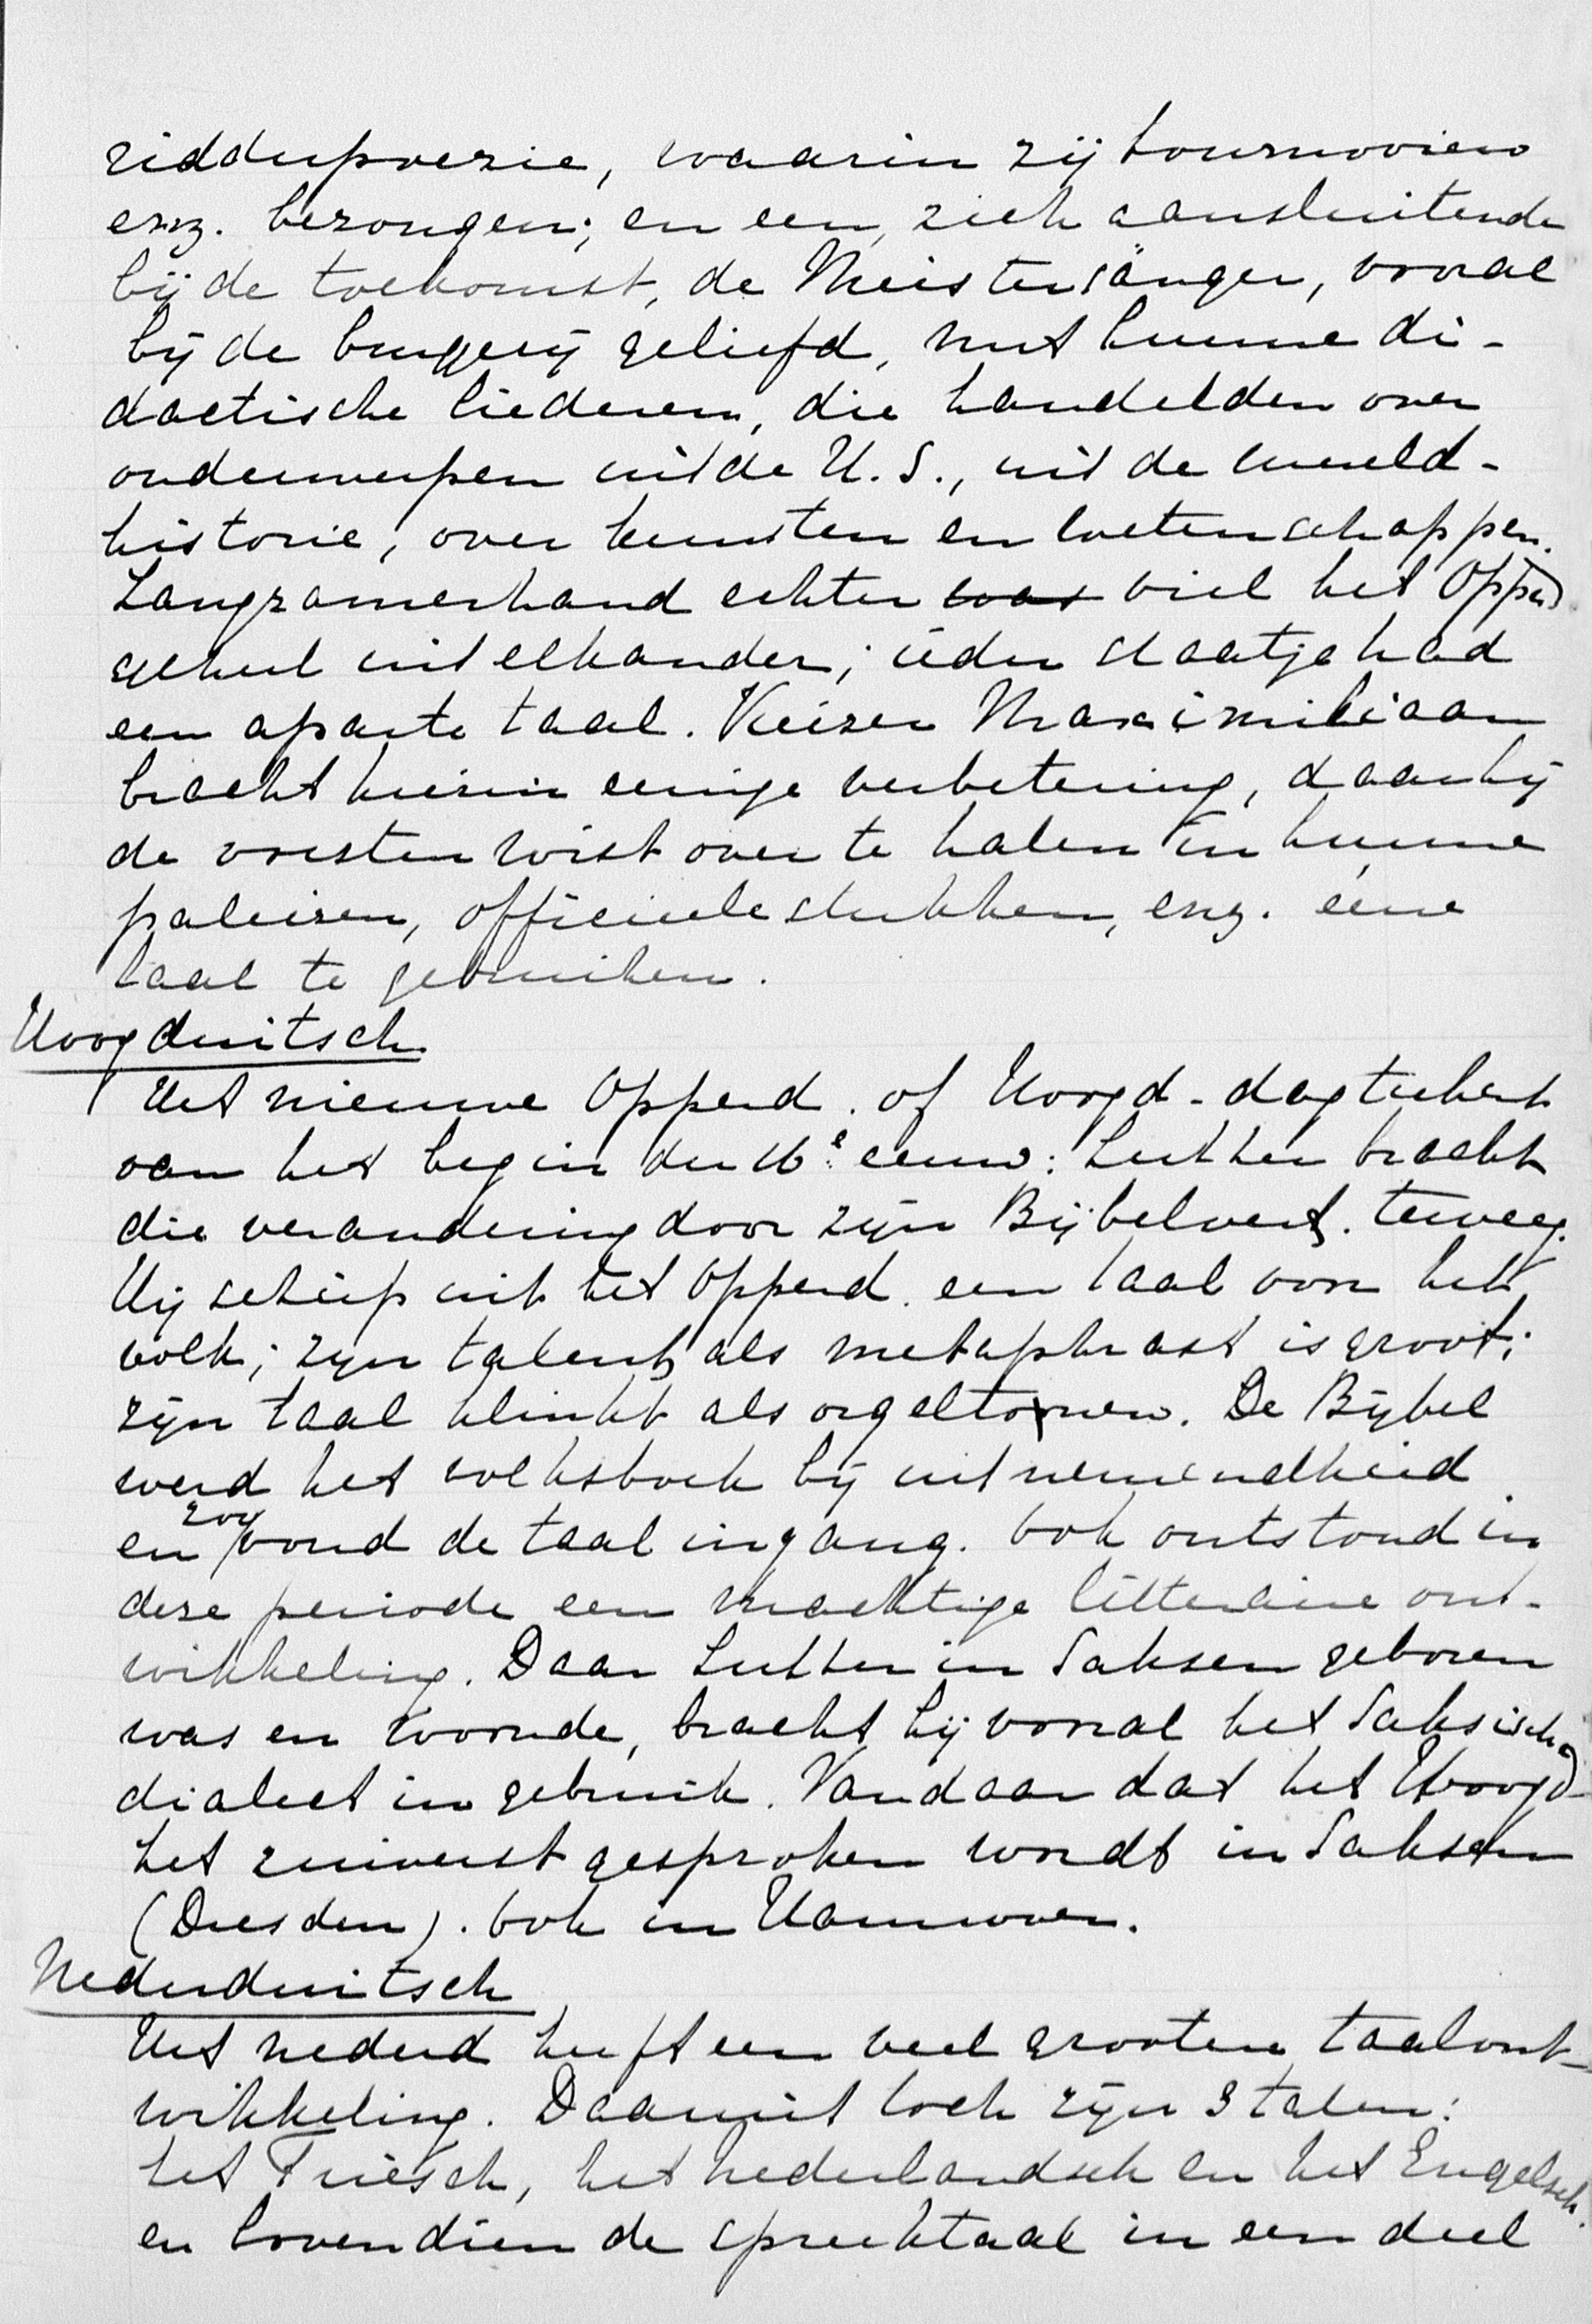 ridderpoezie, waarin zij tournooien
enz. bezongen; en een, zich aansluitende
bij de toekomst, de Meistersänger, vooral
bij de burgerij geliefd, met hunne di-
dactische liederen, die handelden over
onderwerpen uit de H.S., uit de wereld-
historie, over kunsten en wetenschappen.
Langzamerhand echter was viel het Opperd
geheel uit elkander; ieder staatje had
een aparte taal. Keizer Maximiliaan
bracht hierin eenige verbetering, daar hij
de vorsten wist over te halen in hunne
paleizen, officieele stukken, enz. ééne
taal te gebruiken.
Hoogduitsch
Het nieuwe Opperd. of Hoogd. dagteekent
van het begin der 16e eeuw: Luther bracht
die verandering door zijn Bijbelvert. teweeg.
Hij schiep uit het Opperd. een taal voor het
volk; zijn talent als metaphrast is groot;
zijn taal klinkt als orgeltonen. De Bijbel
werd het volksboek bij uitnemendheid
en zoo vond de taal ingang. Ook ontstond in
deze periode een machtige litteraire ont-
wikkeling. Daar Luther in Saksen geboren
was en woonde, bracht hij vooral het Saksische
dialect in gebruik. Vandaar dat het Hoogd.
het zuiverst gesproken wordt in Saksen
(Dresden). Ook in Hannover.
Nederduitsch
Het nederd heeft een veel grootere taalont-
wikkeling. Daaruit toch zijn 3 talen:
het Friesch, het Nederlandsch en het Engelsch.
en bovendien de spreektaal in een deel